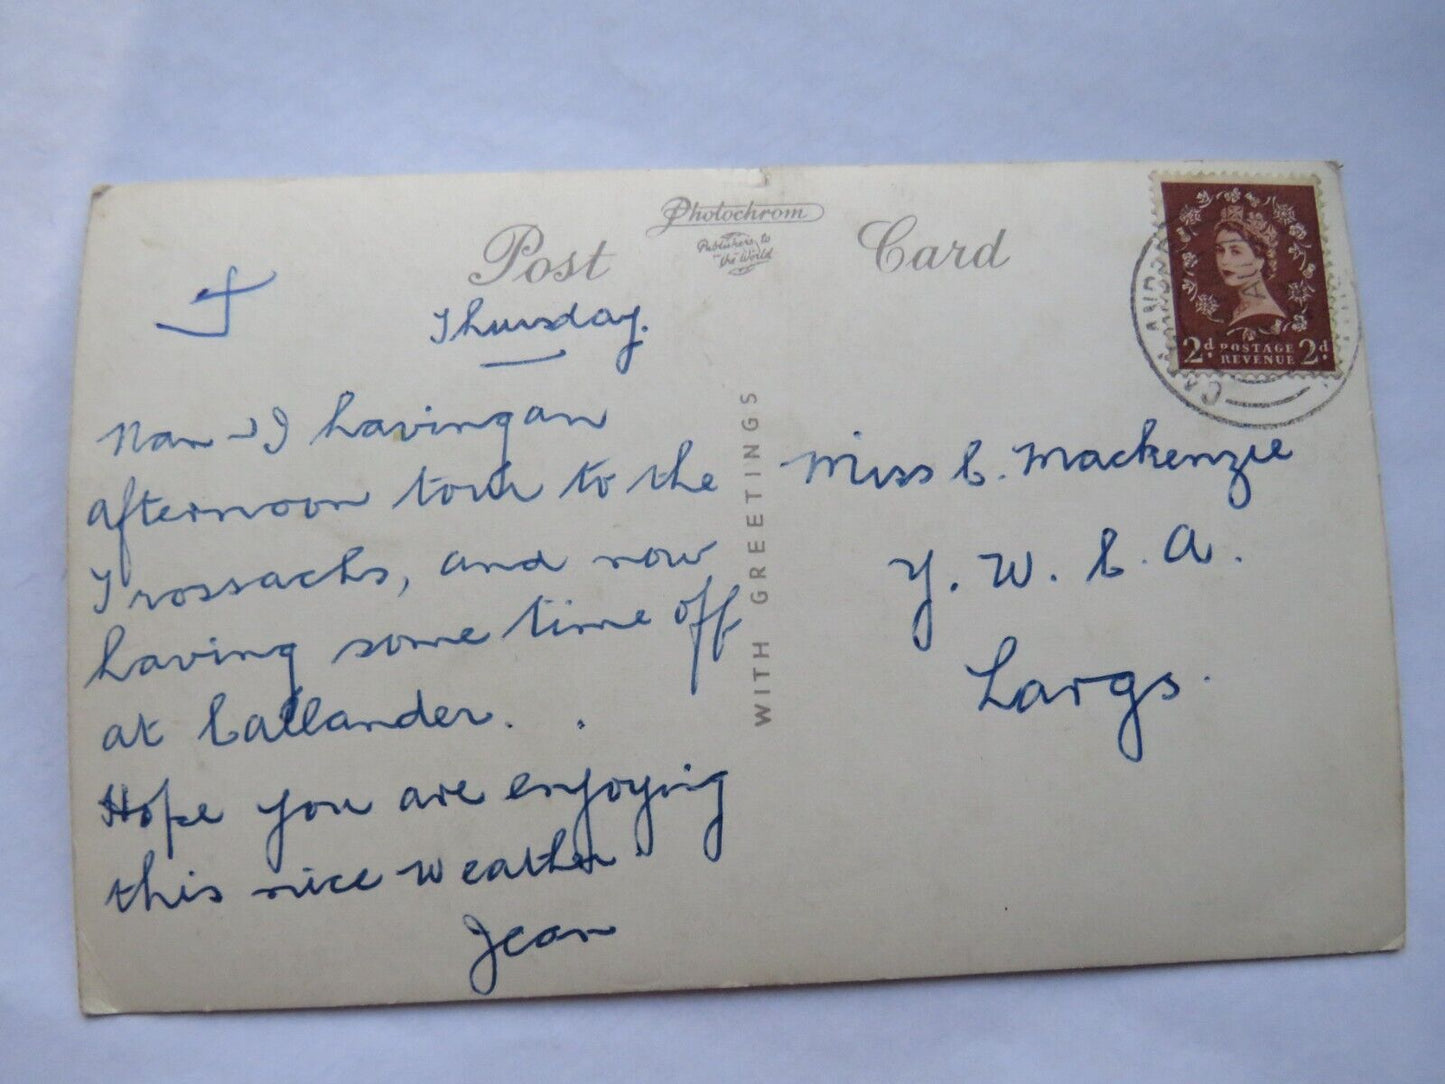 Photochrom
Publishers to
the World
Post Card
Thursday.
Nan & I having an
afternoon tour to the
Trossachs, and now
having some time off
at Callander.
Hope you are enjoying
this nice weather
Jean
WITH GREETINGS
2d POSTAGE 2d
REVENUE
Miss C. Mackenzie
Y. W. C. A.
Largs.